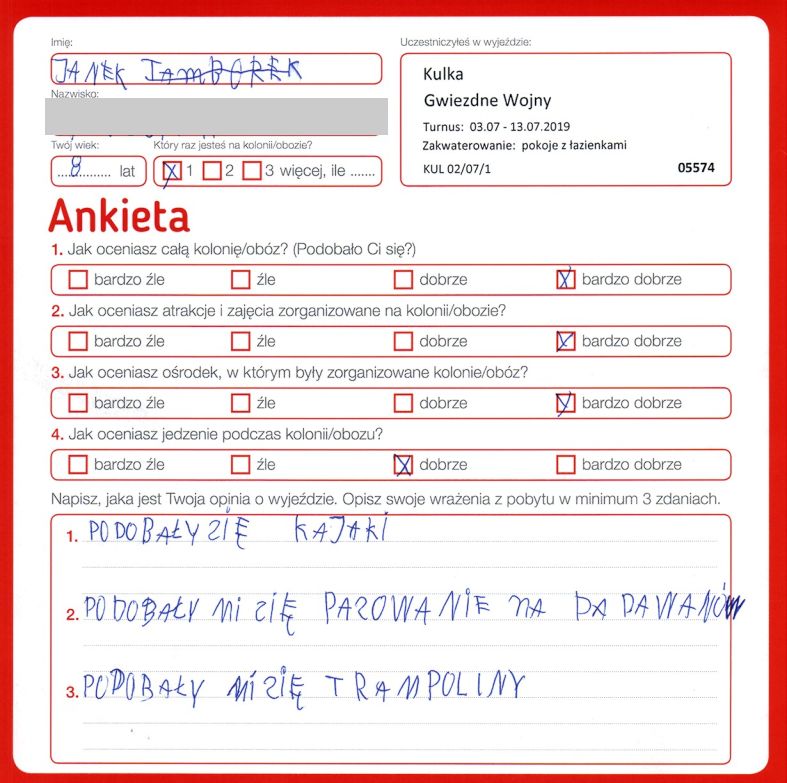 Imię:
Uczestniczyłeś w wyjeździe:
JANEK
Kulka
Gwiezdne Wojny
Nazwisko:
Turnus: 03.07 - 13.07.2019
Zakwaterowanie: pokoje z łazienkami
KUL 02/07/1 05574
Twój wiek: Który raz jesteś na kolonii/obozie?
8 lat X 1 2 3 więcej, ile .......
Ankieta
1. Jak oceniasz całą kolonię/obóz? (Podobało Ci się?)
bardzo źle źle dobrze X bardzo dobrze
2. Jak oceniasz atrakcje i zajęcia zorganizowane na kolonii/obozie?
bardzo źle źle dobrze X bardzo dobrze
3. Jak oceniasz ośrodek, w którym były zorganizowane kolonie/obóz?
bardzo źle źle dobrze X bardzo dobrze
4. Jak oceniasz jedzenie podczas kolonii/obozu?
bardzo źle źle X dobrze bardzo dobrze
Napisz, jaka jest Twoja opinia o wyjeździe. Opisz swoje wrażenia z pobytu w minimum 3 zdaniach.
1. PODOBAŁY SIĘ KAJAKI
2. PODOBAŁY MI SIĘ PASOWANIE NA PADAWANÓW
3. PODOBAŁY MI SIĘ TRAMPOLINY